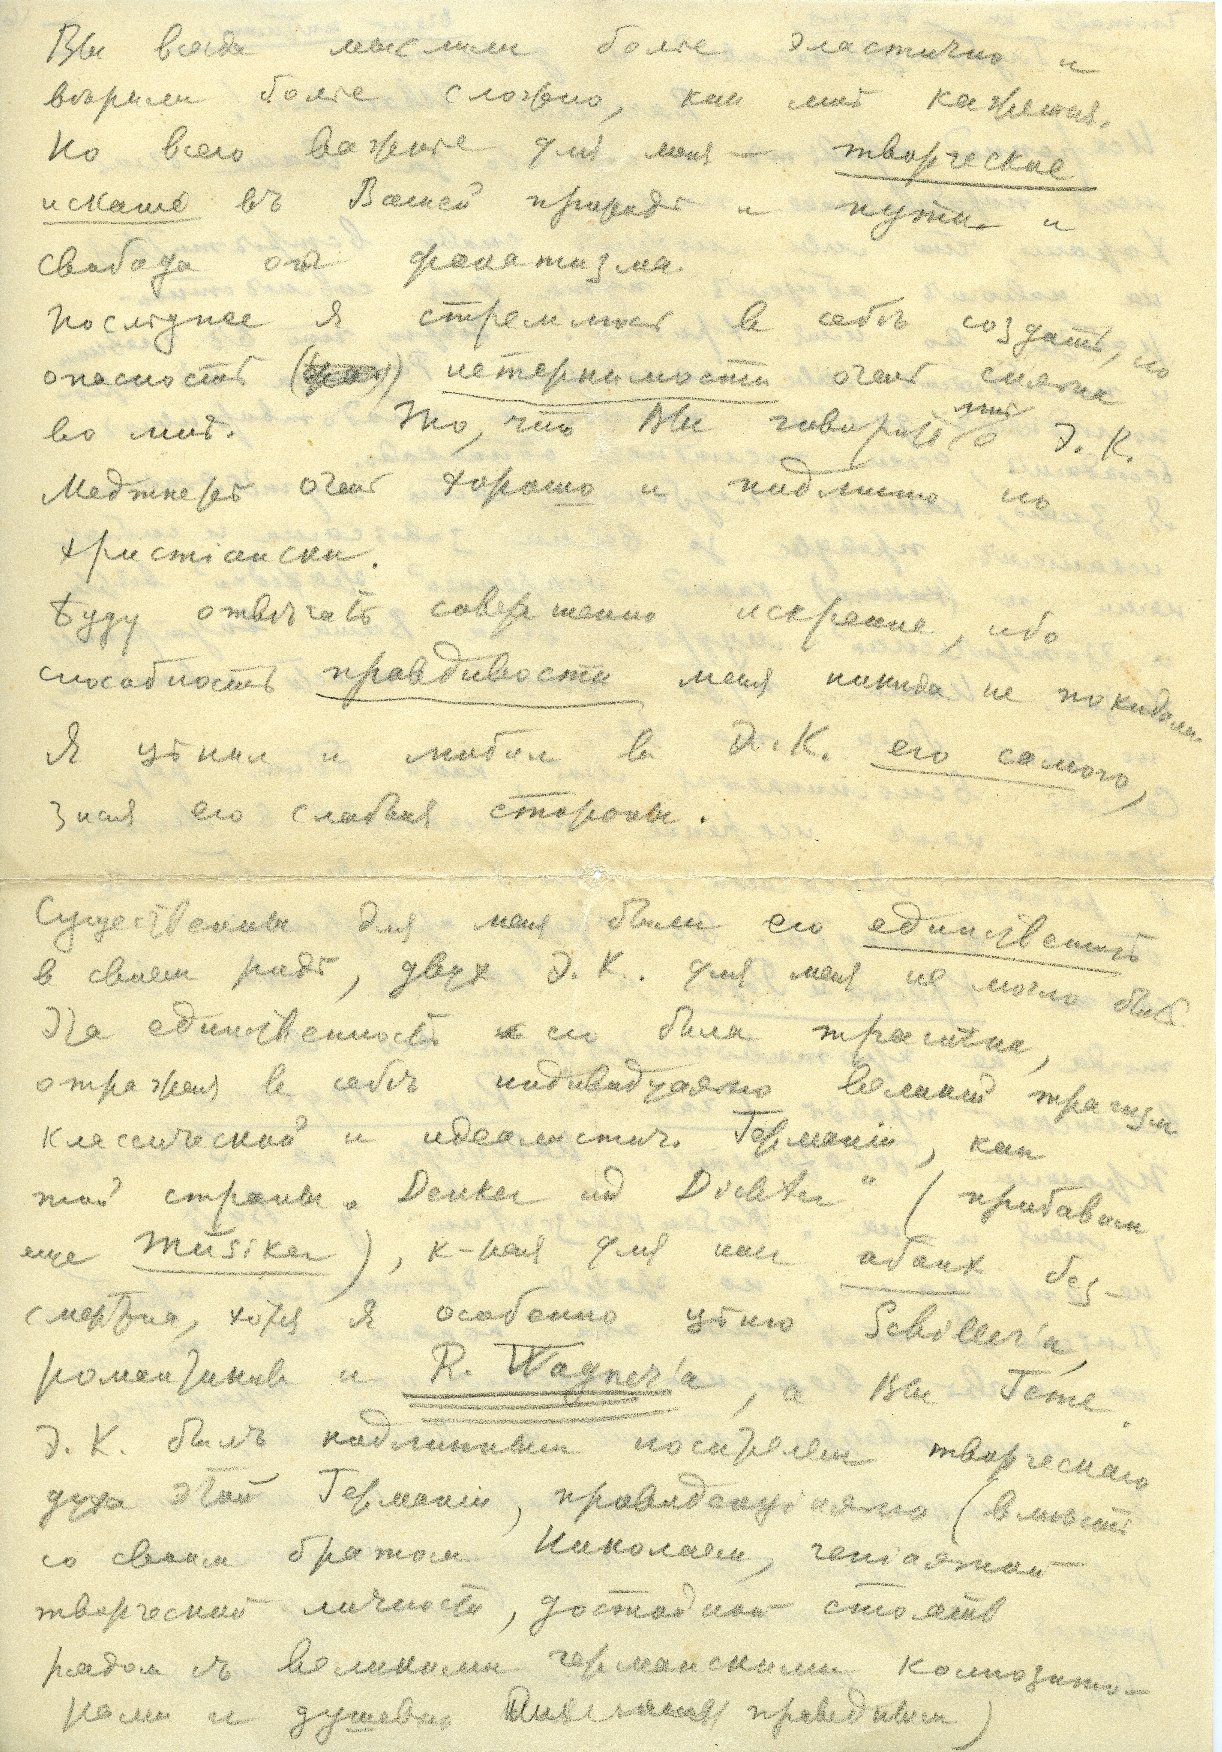 Вы всегда мыслили более эластично и
вѣрили болѣе сложно, как мнѣ кажется.
Но всего важнѣе для меня — творческое
искание въ Вашей природѣ и пути и
свобода отъ фанатизма.
Последнее я стремлюсь в себѣ создать, но
опасность нетерпимости очень сильна
во мнѣ. То, что Вы говорите мнѣ о Э. К.
Метнерѣ очень хорошо и подлинно по
христіански.
Буду отвѣчать совершенно искренне, ибо
способность правдивости меня никогда не покидала.
Я цѣнил и любил в Э. К. его самого,
зная его слабыя стороны.
Существенны для меня были его единственность
в своем родѣ, двух Э. К. для меня не могло быть.
Эта единственность его была трагична,
отражая в себѣ индивидуально великий трагизм
классической и идеалистич. Германіи, как
той страны „Denker und Dichter" (прибавим
еще Musiker), к-рая для нас обоих без-
смертна, хотя я особенно цѣню Schiller'а,
романтиков и R. Wagner'а, а Вы Гете.
Э. К. былъ подлинным носителем творческаго
духа этой Германіи, провиденціально (вмѣстѣ
со своим братом Николаем, геніальной
творческой личность, достойной стоять
рядом съ великими германскими композито-
рами и душевно правдивым)